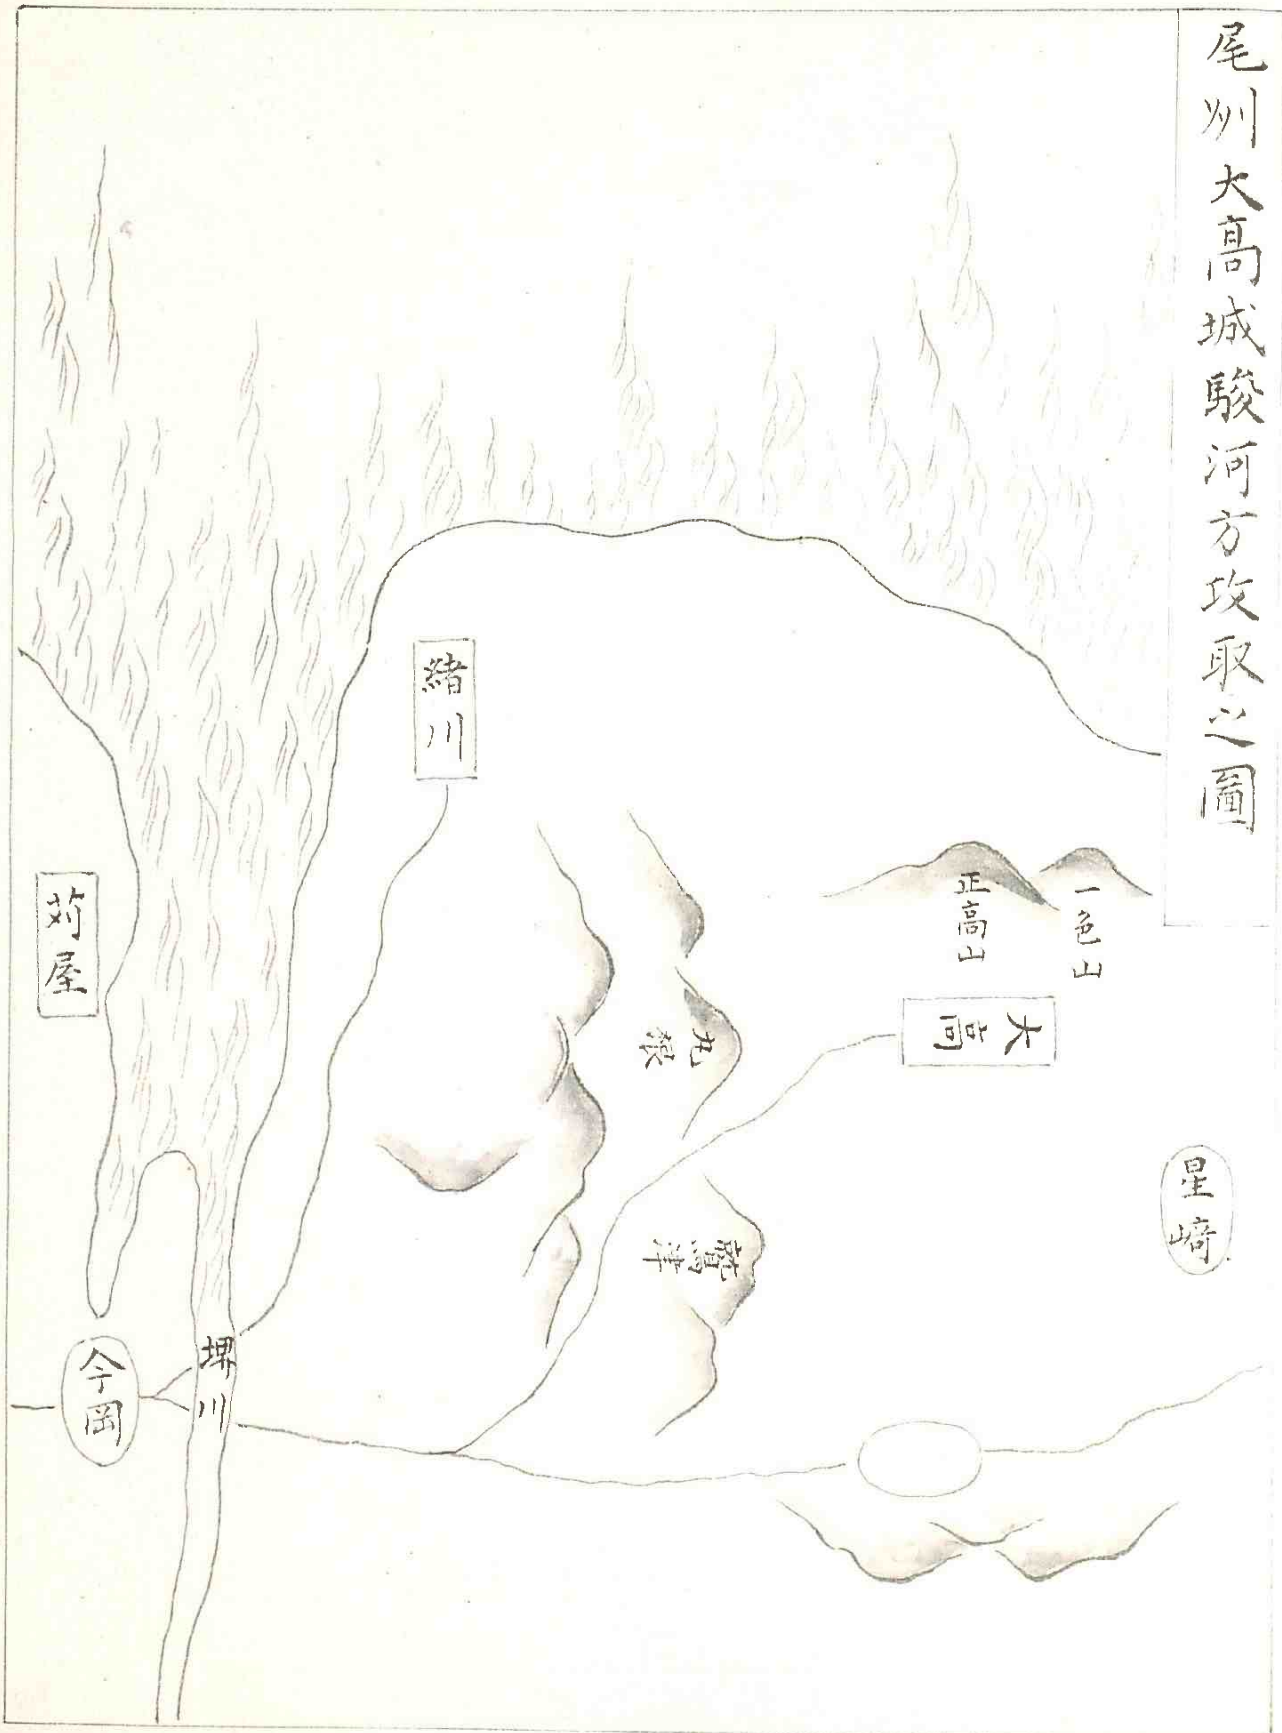 尾州大高城駿河方攻取之圖
一色山
正高山
大高
星﨑
緒川
丸根
鷲津
苅屋
堺川
今岡